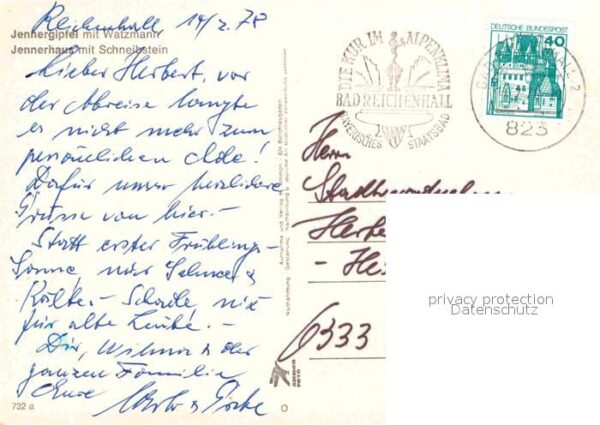 Reichenhall 14/2.78
Jennergipfel mit Watzmann
Jennerhaus mit Schneibstein
Lieber Herbert, vor
der Abreise langte
es nicht mehr zum
persönlichen Ade!
Dafür unser herzliche
Grüsse von hier.-
Statt erster Frühlings-
Sonne, nur Schnee &
Kälte - Schade nix
für alte Leute.-
Dir, Wilma & der
ganzen Familie
Eure
732 a
DIE KUR IM ALPENKLIMA
BAD REICHENHALL
BAYERISCHES STAATSBAD
DEUTSCHE BUNDESPOST
40
823
Herrn
6333
privacy protection
Datenschutz